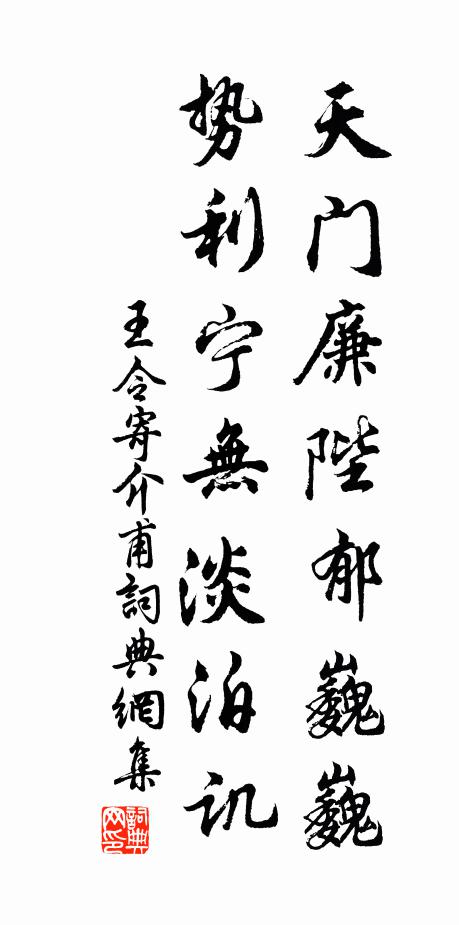 天门廉陛郁巍巍
势利宁無淡泊讥
王令寄介甫詞典網集
詞典网印